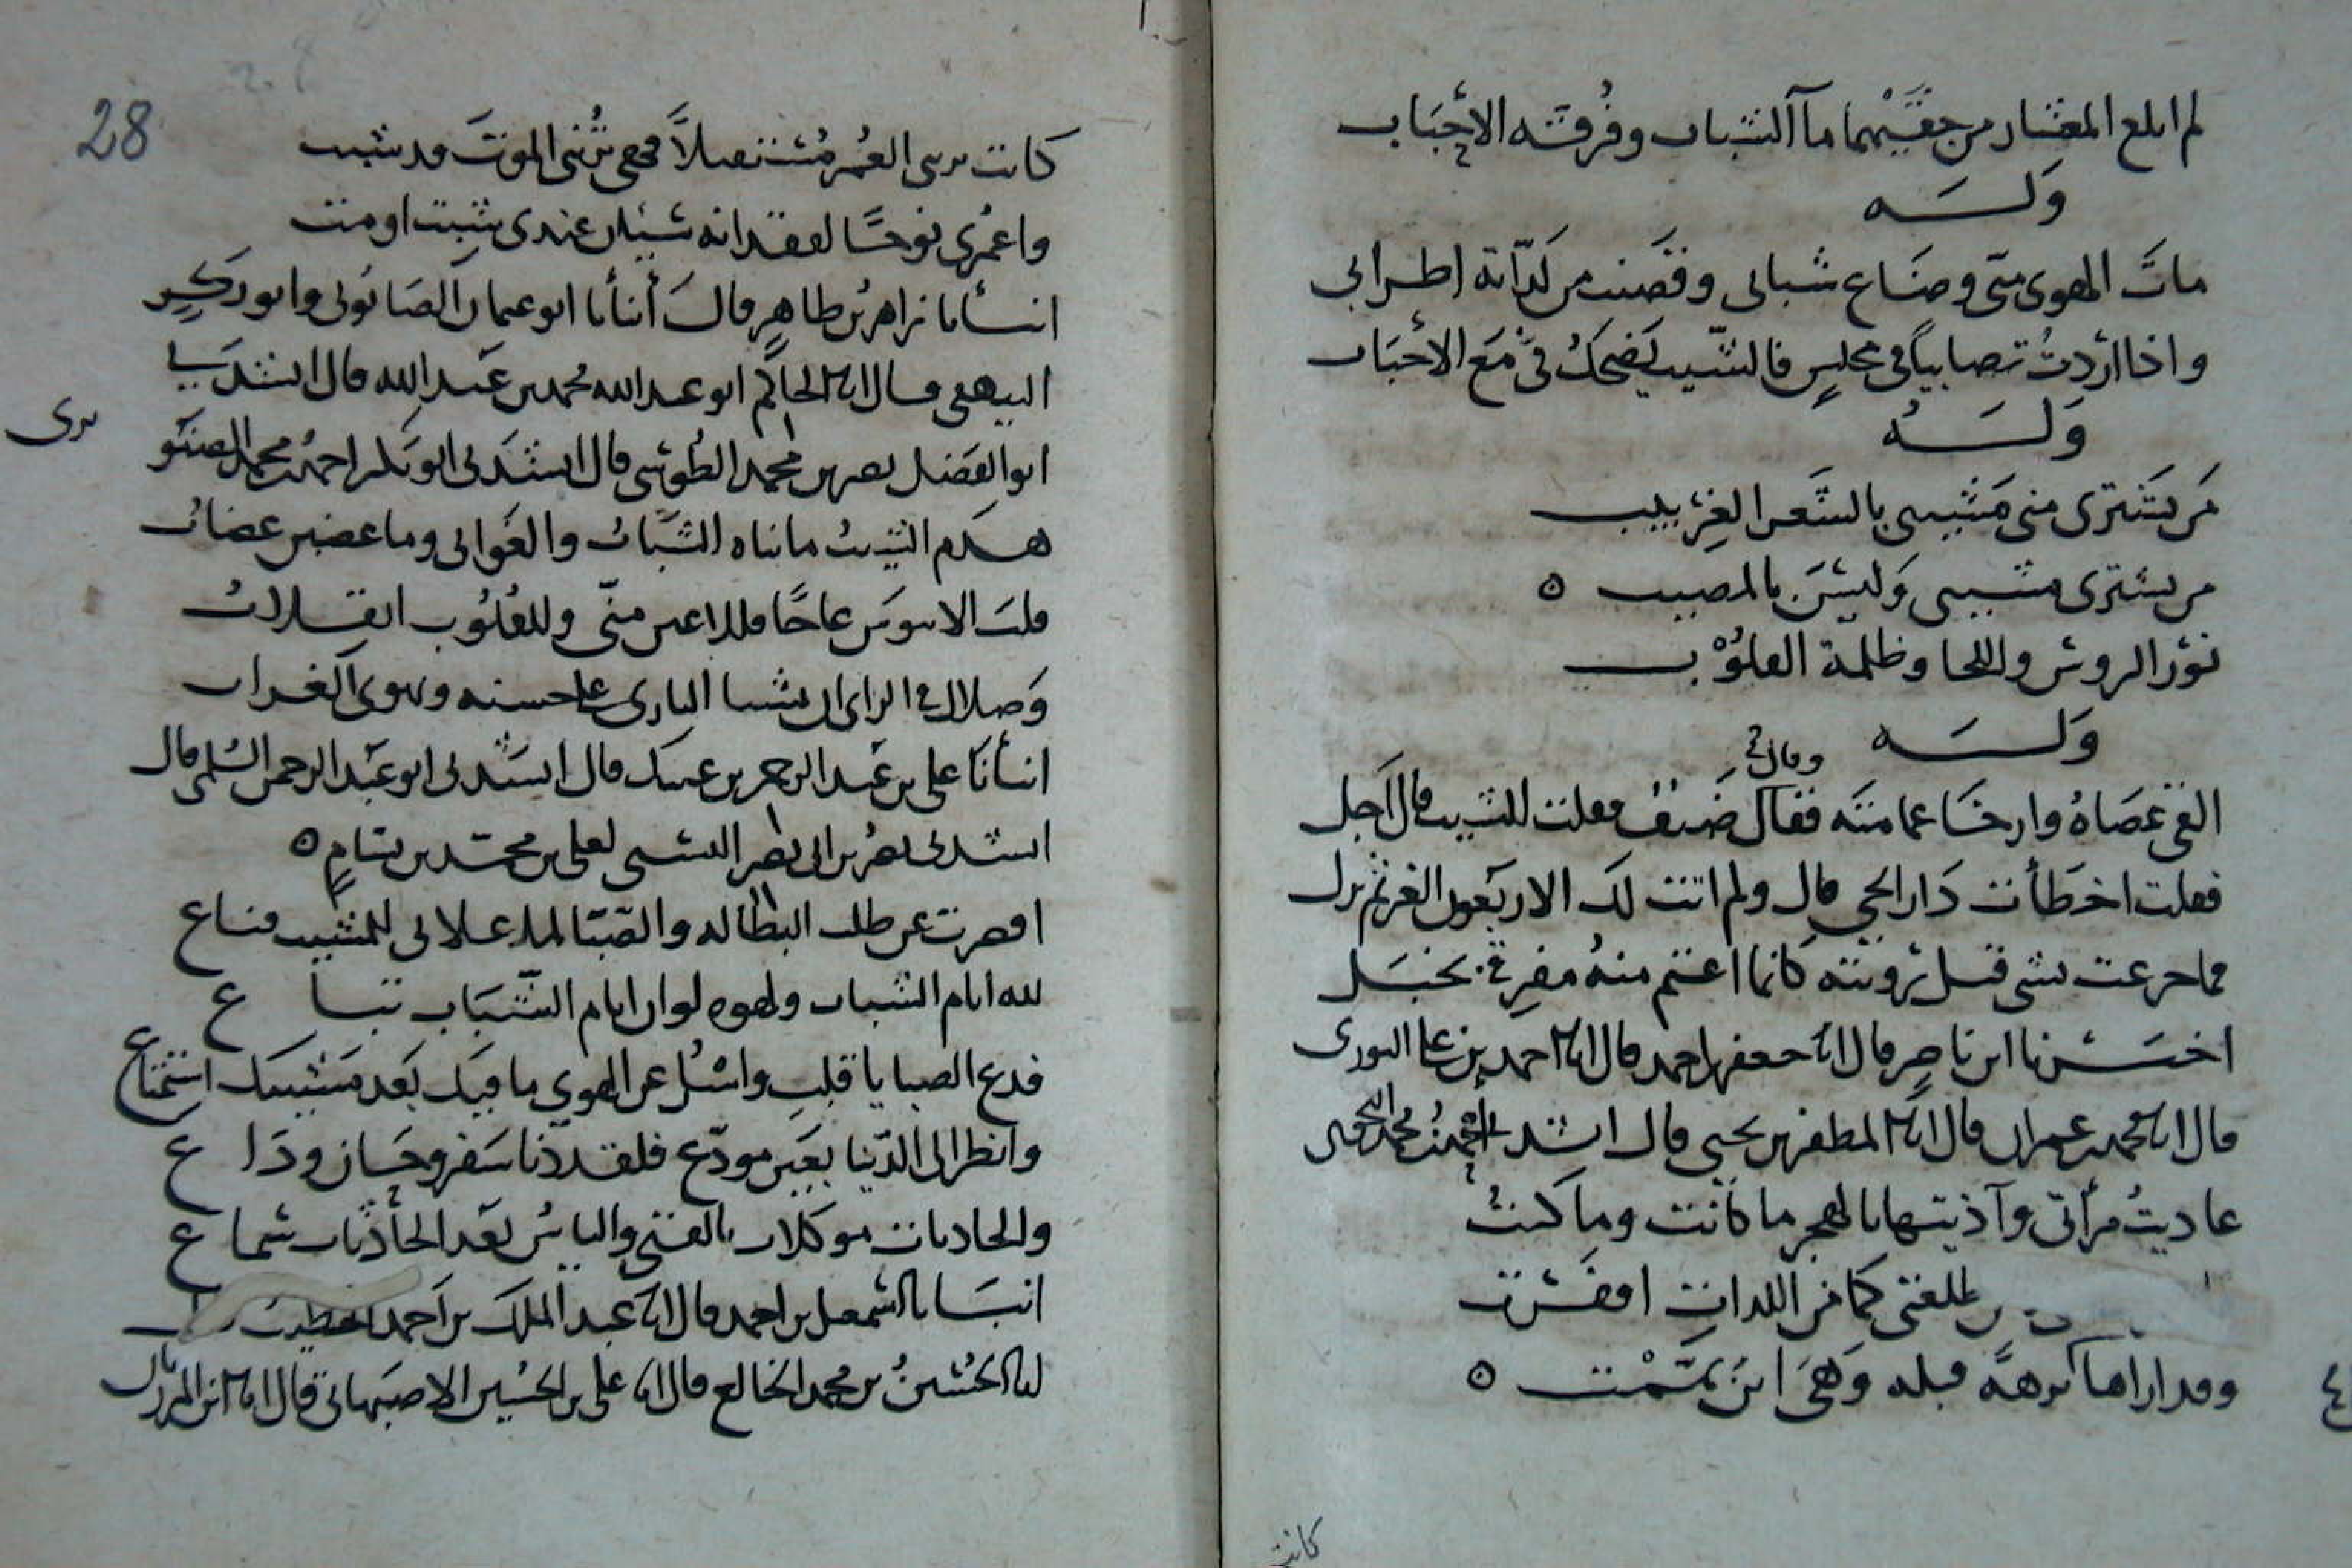 لم ابلع المعشار من حقيهما مآ الشباب وفرقته الاحباب
وله
مات الهوى منى وضاع شبابى وقضيت من لذاته اطرابى
واذا اردت تصابيا فى مجلس فالشيب يضحك بى مع الاحباب
وله
من يشترى منى مشيبى بالشعر الغربيب
من يشترى مشيبى وليس بالمصيب ٥
نور الروس واللحا وظلمة القلوب
وله
وقال
القى عصاه وارخا عمامته فقال ضيف فقلت للشيب قال اجل
فقلت اخطأت دار الحى قال ولم اتت لك الاربعون الغر ثم نزل
فما جزعت بشى قبل ثروتته كانما اعتم منه مفرقى بجبل
اخبرنا ابن ناصر قال انا جعفر بن احمد قال انا احمد بن على التورى
قال انا محمد بن عمران قال انا المظفر بن يحيى قال انشد احمد بن محمد
عاديت مرأتى وآذيتها بالهجر ما كانت وما كنت
للفتى كما من اللدات اقفرت
وقد اراها برهة قبله وهى اين يممت ٥
كانت
28
كانت ترى العمر مستقبلا فهى ترينى الموت مد شبت
واعمرى نوحا لفقدانه سيان عندى شبت او مت
انبأنا زاهر بن طاهر قال أنبأنا ابو عثمان الصابونى وابو بكر
البيهقى قال انا الحاكم ابو عبد الله محمد بن عبد الله قال انشدنى
ابو الفضل نصر بن محمد الطوسى قال انشدنى ابو بكر احمد بن محمد الصنو
برى
هدم الشيب ما بناه الشباب والغوانى وما عضبن عضاب
قلب الابنوس عاجا فللاعين منى وللقلوب انقلاب
وضلال فى الراى ان يشنا البازى على حسنه ويهوى الغراب
انبأنا على بن عبد الرحمن بن عليك قال انشدنى ابو عبد الرحمن السلمى قال
انشدنى نصر بن ابى نصر لعلى بن محمد بن بسام ٥
اقصرت عن طلب البطالة والصبا لما علانى للمشيب قناع
لله ايام الشباب ولهوه لو ان ايام الشباب تباع
فدع الصبا يا قلب واسل عن الهوى ما فيك بعد مشيبك استمتاع
وانظر الى الدنيا بعين مودع فلقد دنا سفر وحان وداع
والحادثات موكلات بالفتى والناس بعد الحادثات سماع
انبانا اسمعيل بن احمد قال انا عبد الملك بن احمد
انا الحسين بن محمد الخالع قال انا على بن الحسين الاصبهانى قال انا ابن المرزبان